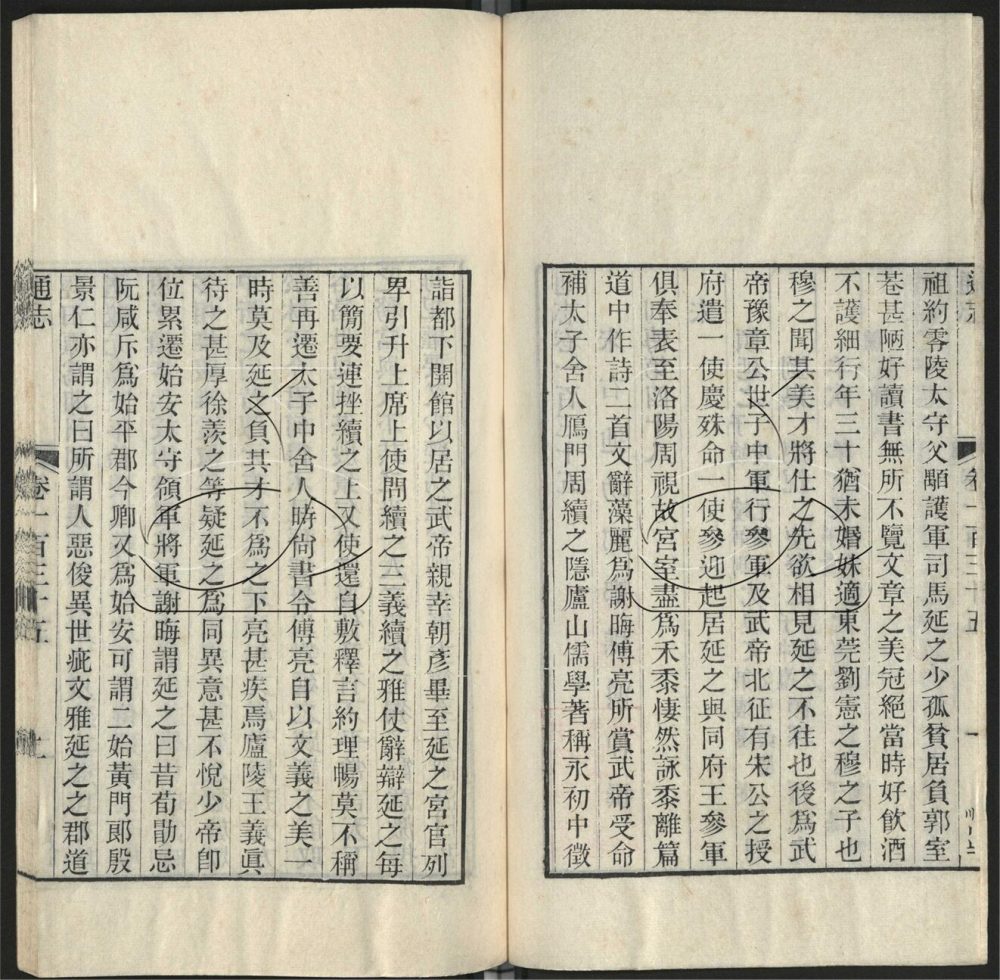 祖約零陵太守父顒護軍司馬延之少孤貧居負郭室
巷甚陋好讀書無所不覽文章之美冠絕當時好飲酒
不護細行年三十猶未婚妹適東莞劉憲之穆之子也
穆之聞其美才將仕之先欲相見延之不往也後爲武
帝豫章公世子中軍行參軍及武帝北征有宋公之授
府遣一使慶殊命一使參迎起居延之與同府王參軍
俱奉表至洛陽周視故宮室盡爲禾黍悽然詠黍離篇
道中作詩二首文辭藻麗爲謝晦傅亮所賞武帝受命
補太子舍人鴈門周續之隱廬山儒學著稱永初中徵
詣都下開館以居之武帝親幸朝彥畢至延之宮官列
卑引升上席上使問續之三義續之雅仗辭辯延之每
以簡要連挫續之上又使還自敷釋言約理暢莫不稱
善再遷太子中舍人時尙書令傅亮自以文義之美一
時莫及延之負其才不爲之下亮甚疾焉廬陵王義眞
待之甚厚徐羨之等疑延之爲同異意甚不悅少帝卽
位累遷始安太守領軍將軍謝晦謂延之曰昔荀勖忌
阮咸斥爲始平郡今卿又爲始安可謂二始黃門郞殷
景仁亦謂之曰所謂人惡俊異世疵文雅延之之郡道
通志 卷一百三十五